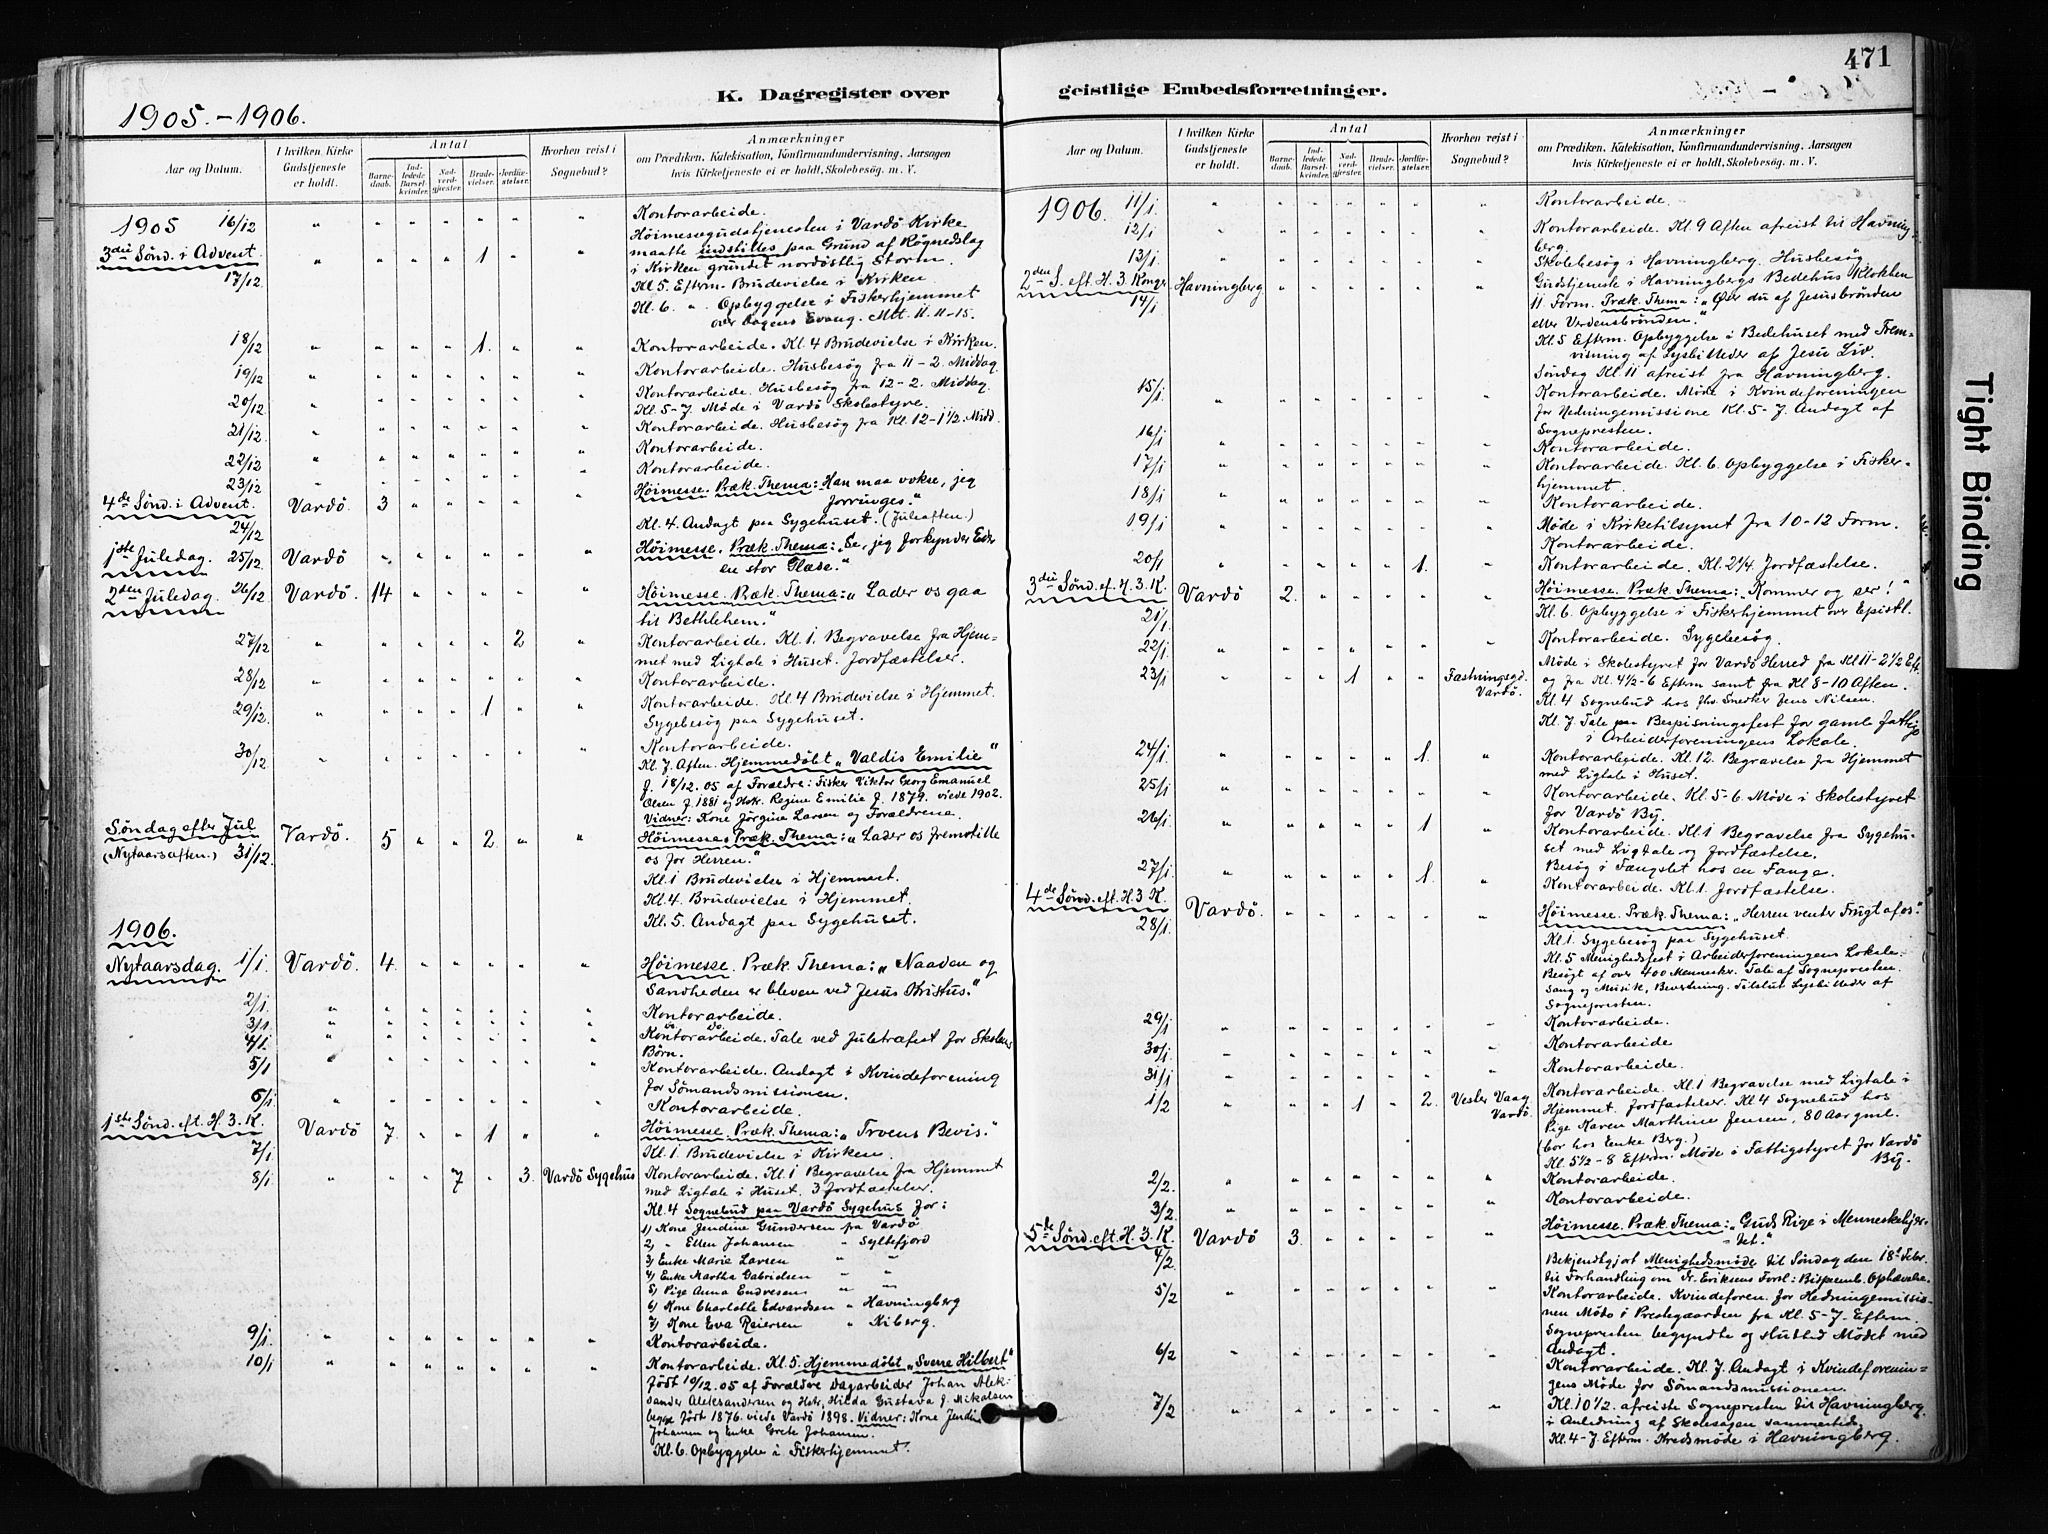 471
K. Dagregister over geistlige Embedsforretninger.
1905.-1906.
Aar og Datum.
I hvilken Kirke Gudstjeneste er holdt.
Antal
Barnedaab.
Indledede Barselkvinder.
Nadverdgjester.
Brudevielser.
Jordfæstelser.
Hvorhen reist i Sognebud?
Anmærkninger
om Prædiken, Katekisation, Konfirmandundervisning, Aarsagen
hvis Kirketjeneste ei er holdt, Skolebesøg. m. V.
1905 16/12 Kontorarbeide.
3die Sønd. i Advent 17/12 1 Høimessegudstjenesten i Vardö Kirke
maatte indstilles paa Grund af Røgnedslag
i Kirken grundet nordøstlig Storm.
Kl. 5. Efterm. Brudevielse i Kirken
Kl. 6. " Opbyggelse i Fiskerhjemmet
over Dagens Evang. Mtt. 11. 11-15.
18/12 1. Kontorarbeide. Kl. 4 Brudevielse i Kirken.
19/12 Kontorarbeide. Husbesøg fra 11-2. Middag.
20/12 Kontorarbeide. Husbesøg fra 12-2. Middag.
Kl. 5-7. Møde i Vardö Skolestyre.
21/12 Kontorarbeide. Husbesøg fra Kl. 12-1 1/2. Midd.
22/12 Kontorarbeide.
23/12 Kontorarbeide.
4de Sønd. i Advent. 24/12 Vardö. 3 Høimesse. Præk. Thema: Han maa vokse, jeg
forringes."
Kl. 4. Andagt paa Sygehuset. (Juleaften.)
1ste Juledag. 25/12 Vardö Høimesse. Præk. Thema: "Se, jeg forkynder Eder
en stor Glæde."
2den Juledag. 26/12 Vardö. 14 Høimesse. Præk. Thema: "Lader os gaa
til Bethlehem."
27/12 2 Kontorarbeide. Kl. 1. Begravelse fra Hjem-
met med Ligtale i Huset. Jordfæstelser.
28/12 Kontorarbeide.
29/12. 1 Kontorarbeide. Kl. 4 Brudevielse i Hjemmet.
Sygebesøg paa Sygehuset.
30/12 Kontorarbeide.
Kl. 7. Aften. Hjemmedøbt "Valdis Emilie"
f. 18/12. 05 af Forældre: Fisker Viktor Georg Emanuel
Olsen f. 1881 og Hstr. Regine Emilie f. 1879. viede 1902.
Vidner: Kone Jørgine Larsen og Forældrene.
Søndag efter Jul (Nytaarsaften.) 31/12. Vardö. 5 2. Høimesse. Præk. Thema: "Lader os fremstille
os for Herren."
Kl. 1 Brudevielse i Hjemmet.
Kl. 4. Brudevielse i Hjemmet.
Kl. 5. Andagt paa Sygehuset.
1906.
Nytaarsdag. 1/1. Vardö. 4. Høimesse. Præk. Thema: "Naaden og
Sandheden er bleven ved Jesus Kristus."
2/1. Kontorarbeide.
3/1 do. do.
4/1. Kontorarbeide. Tale ved Juletræfest for Skolens
Børn.
5/1 Kontorarbeide. Andagt i Kvindeforening
for Sømandsmissionen.
6/1. Kontorarbeide.
1ste Sønd. eft. H. 3. K. 7/1 Vardö 7. 1 Høimesse. Præk. Thema: "Troens Bevis."
Kl. 1. Brudevielse i Kirken.
8/1. 7 3. Vardö Sygehus Kontorarbeide. Kl. 1 Begravelse fra Hjemmet
med Ligtale i Huset. 3 Jordfæstelser.
Kl. 4 Sognebud paa Vardö Sygehus for:
1) Kone Jendine Gundersen fra Vardö
2) " Ellen Johansen " Syltefjord
3) Enke Marie Larsen " "
4) Enke Martha Gabrielsen " "
5) Pige Anna Endresen " "
6) Kone Charlotte Edvardsen " Havningberg
7) Kone Eva Reiersen " Kiberg.
9/1. Kontorarbeide.
10/1 Kontorarbeide. Kl. 5. Hjemmedøbt "Sverre Hilbert"
født 19/12. 05 af Forældre Dagarbeider Johan Alek-
sander Aleksandersen og Hstr. Hilda Gustava f. Mikalsen
begge født 1876. viede Vardö 1898. Vidner: Kone Jendine
Johansen og Enke Grete Johansen.
Kl. 6. Opbyggelse i Fiskerhjemmet.
Aar og Datum.
I hvilken Kirke Gudstjeneste er holdt.
Antal
Barnedaab.
Indledede Barselkvinder.
Nadverdgjester.
Brudevielser.
Jordfæstelser.
Hvorhen reist i Sognebud?
Anmærkninger
om Prædiken, Katekisation, Konfirmandundervisning, Aarsagen
hvis Kirketjeneste ei er holdt, Skolebesøg. m. V.
1906. 11/1. Kontorarbeide.
12/1 Kontorarbeide. Kl. 9 Aften afreist til Havning-
berg.
13/1. Skolebesøg i Havningberg. Husbesøg
2den S. eft. H. 3. Konger 14/1 Havningberg. Gudstjeneste i Havningbergs Bedehus Klokken
11 Form. Præk. Thema: "Øser du af Jesusbrønden
eller Verdensbrønden."
Kl. 5 Efterm. Opbyggelse i Bedehuset med Frem-
visning af Lysbilleder af Jesu Liv.
Søndag Kl. 11 afreist fra Havningberg.
15/1. Kontorarbeide. Møde i Kvindeforeningen
for Hedningemissione Kl. 5-7. Andagt af
Sognepresten.
16/1 Kontorarbeide.
17/1 Kontorarbeide. Kl. 6. Opbyggelse i Fisker-
hjemmet.
18/1 Kontorarbeide.
19/1 Møde i Kirketilsynet fra 10-12 Form.
Kontorarbeide.
20/1 1. Kontorarbeide. Kl. 2 1/4. Jordfæstelse.
3die Sønd. ef. H. 3. K. 21/1. Vardö 2. Høimesse. Præk. Thema: "Kommer og ser!"
Kl. 6. Opbyggelse i Fiskerhjemmet over Epistl.
22/1 Kontorarbeide. Sygebesøg.
23/1 1 Fæstningsgd. Vardö. Møde i Skolestyret for Vardö Herred fra Kl 11-2 1/2 Eft.
og fra Kl. 4 1/2-6 Efterm samt fra Kl 8-10 Aften.
Kl. 4 Sognebud hos fhv. Snedker Jens Nilsen.
Kl. 7 Tale paa Bespisningsfest for gamle fattige
i Arbeiderforeningens Lokale.
24/1 1. Kontorarbeide. Kl. 12. Begravelse fra Hjemmet
med Ligtale i Huset.
25/1 Kontorarbeide. Kl. 5-6. Møde i Skolestyret
for Vardö By.
26/1 1 Kontorarbeide. Kl. 1 Begravelse fra Sygehu-
set med Ligtale og Jordfæstelse.
Besøg i Fængslet hos en Fange.
27/1. 1. Kontorarbeide. Kl. 1. Jordfæstelse.
4de Sønd. eft. H. 3 K. 28/1. Vardö. Høimesse. Præk. Thema: "Herren venter Frugt af os."
Kl. 1. Sygebesøg paa Sygehuset.
Kl. 5 Menighedsfest i Arbeiderforeningens Lokale.
Besøgt af over 400 Mennesker. Tale af Sognepresten.
Sang og Musik, Bevertning. Tilslut Lysbilleder af
Sognepresten.
29/1 Kontorarbeide.
30/1 Kontorarbeide
31/1 Kontorarbeide.
1/2 1 2. Vesler Vaag Vardö. Kontorarbeide. Kl. 1 Begravelse med Ligtale i
Hjemmet. Jordfæstelser. Kl 4 Sognebud hos
Pige Karen Marthine Jensen, 80 Aar gml.
(bor hos Enke Berg.)
Kl. 5 1/2-8 Efterm. Møde i Fattigstyret for Vardö
By.
2/2. Kontorarbeide.
3/2. Kontorarbeide.
5de Sønd. eft. H. 3. K. 4/2 Vardö 3. Høimesse. Præk. Thema: "Guds Rige i Menneskehjer-
tet."
Bekjendtgjort Menighedsmøde til Søndag den 18de Febr.
til Forhandling om Fr. Eriksens Forsl: Bispeemb. Ophævelse.
5/2 Kontorarbeide. Kvindeforen. for Hedningemissio-
nen Møde i Prestegaarden fra Kl. 5-7. Efterm.
Sognepresten begyndte og sluttede Mødet med
Andagt.
6/2 Kontorarbeide. Kl. 7. Andagt i Kvindeforenin-
gens Møde for Sømandsmissionen.
7/2 Kl. 10 1/2. afreiste Sognepresten til Havningberg
i Anledning af Skolesagen sammesteds
Kl. 4-7 Efterm. Kredsmøde i Havningberg.
Tight Binding